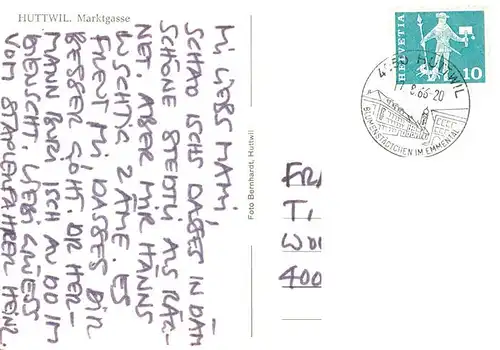 HUTTWIL. Marktgasse
MI LIEBS MAMI,
SCHAD ISCHS DASSES IN DÄM
SCHÖNE STEDTLI ALS RÄG-
NET. ABER MIR HANNS
LUSCHTIG ZÄME. ES
FREUT MI DASSES DIR
BESSER GOHT. DR HER-
MANN BURI ISCH AU DO IM
DIENSCHT. LIEBI GRÜESS
VOM STAPLENFAHRER HEINI.
Foto Bernhardt, Huttwil
HELVETIA
10
HUTTWIL
8.66-20
BLUMENSTÄDTCHEN IM EMMENTAL
T.
400